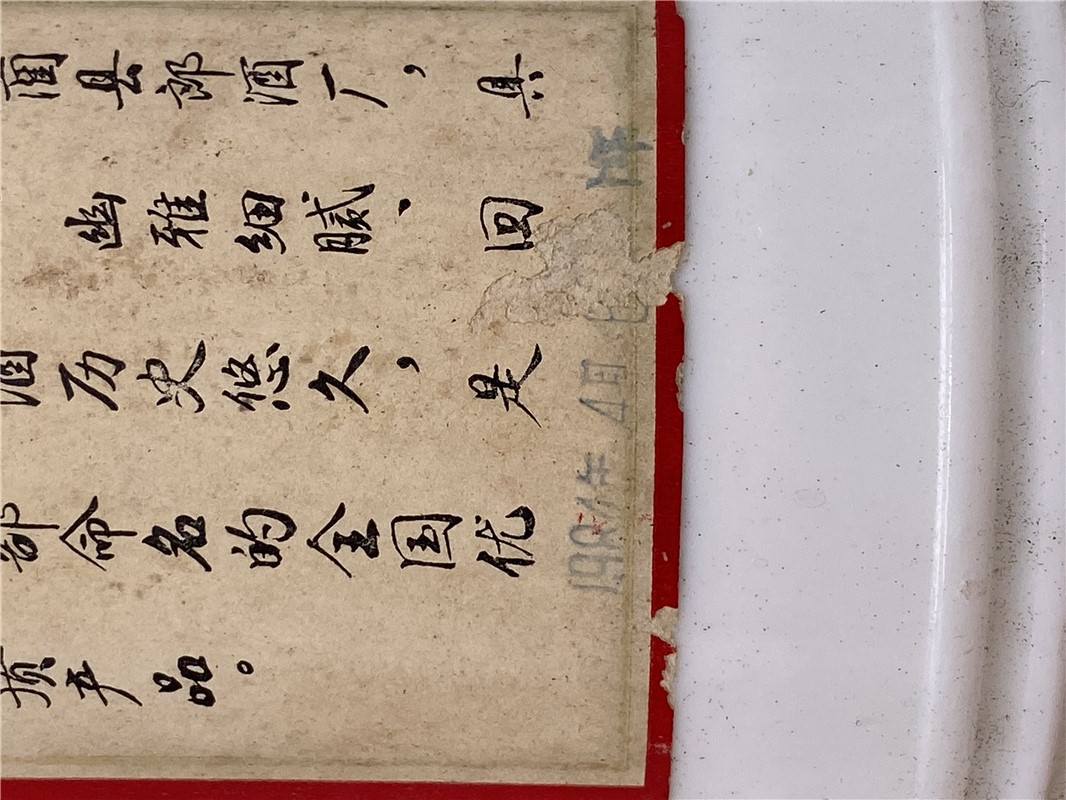 蔺县郎酒厂，具
幽雅细腻、回
酒历史悠久，是
部命名的全国优
质产品。
年 4月 日